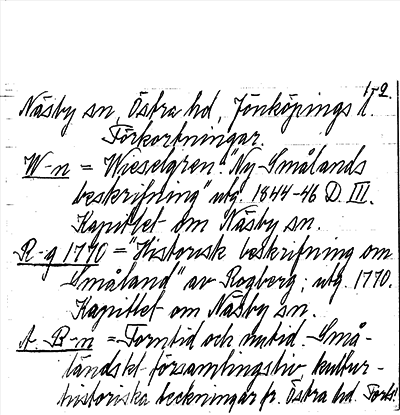 1-2.
Näsby sn, Östra hd, Jönköpings l.
Förkortningar
W-n = Wieselgren: "Ny Smålands
beskrifning" utg. 1844-46 D III.
Kapitlet om Näsby sn.
R-g 1770 = "Historisk beskrifning om
Småland" av Rogberg; utg. 1770.
Kapitlet om Näsby sn.
A. B-n = Forntid och nutid. Små-
ländskt församlingsliv, kultur-
historiska teckningar fr. Östra hd. Forts!